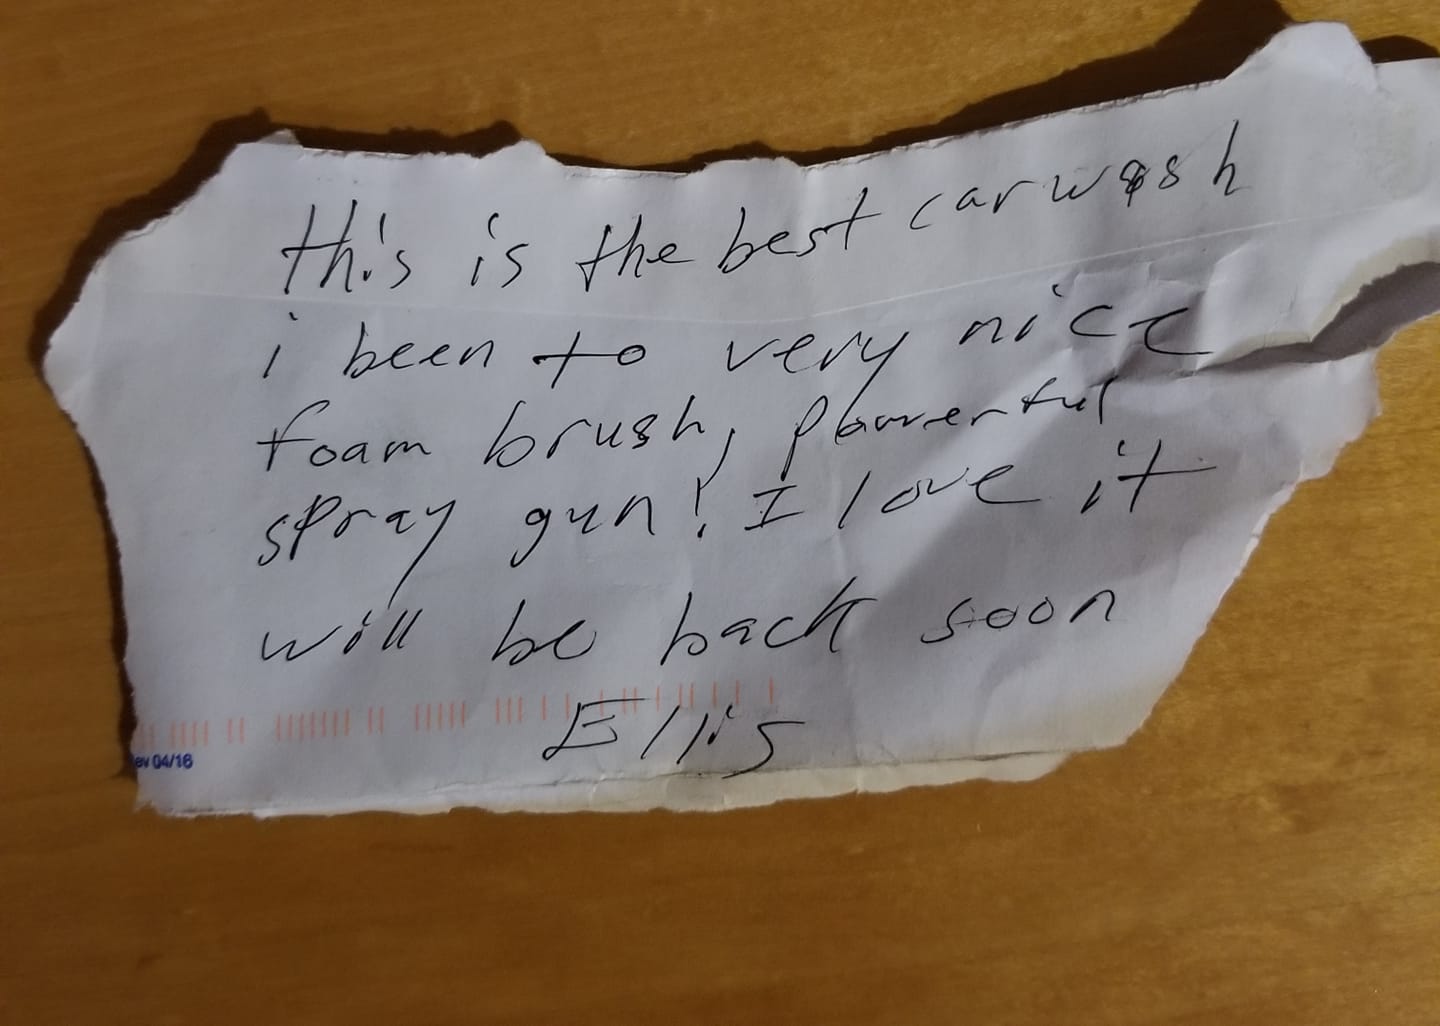 this is the best carwash
i been to very nice
foam brush, powerful
spray gun! I love it
will be back soon
Ellis
ev 04/16